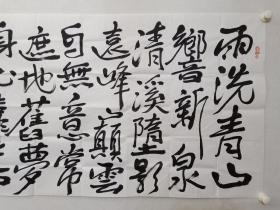 雨洗青山
響新泉
清溪墮影
遠峰巔雲
自無意常
遮地舊夢
身